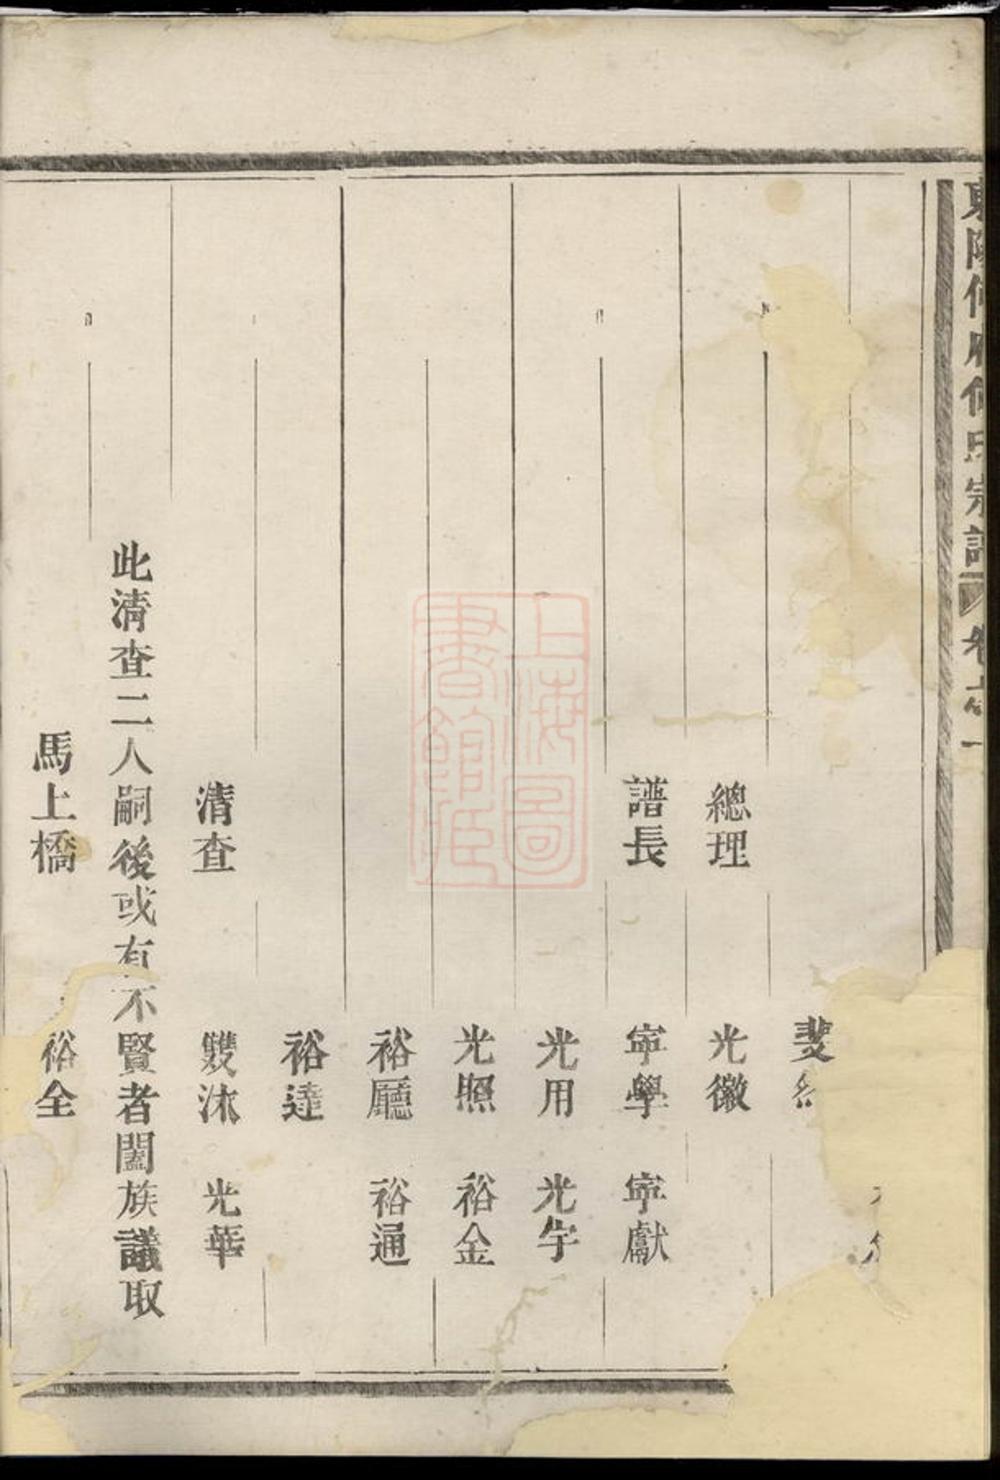 東陽何府何氏宗譜 卷之一
斐
總理 光徽
譜長 寧學 寧獻
光用 光宇
光照 裕金
裕廳 裕通
裕達
清查 雙沐 光華
此清查二人嗣後或有不賢者闔族議取
馬上橋 裕全
上海圖
書館藏